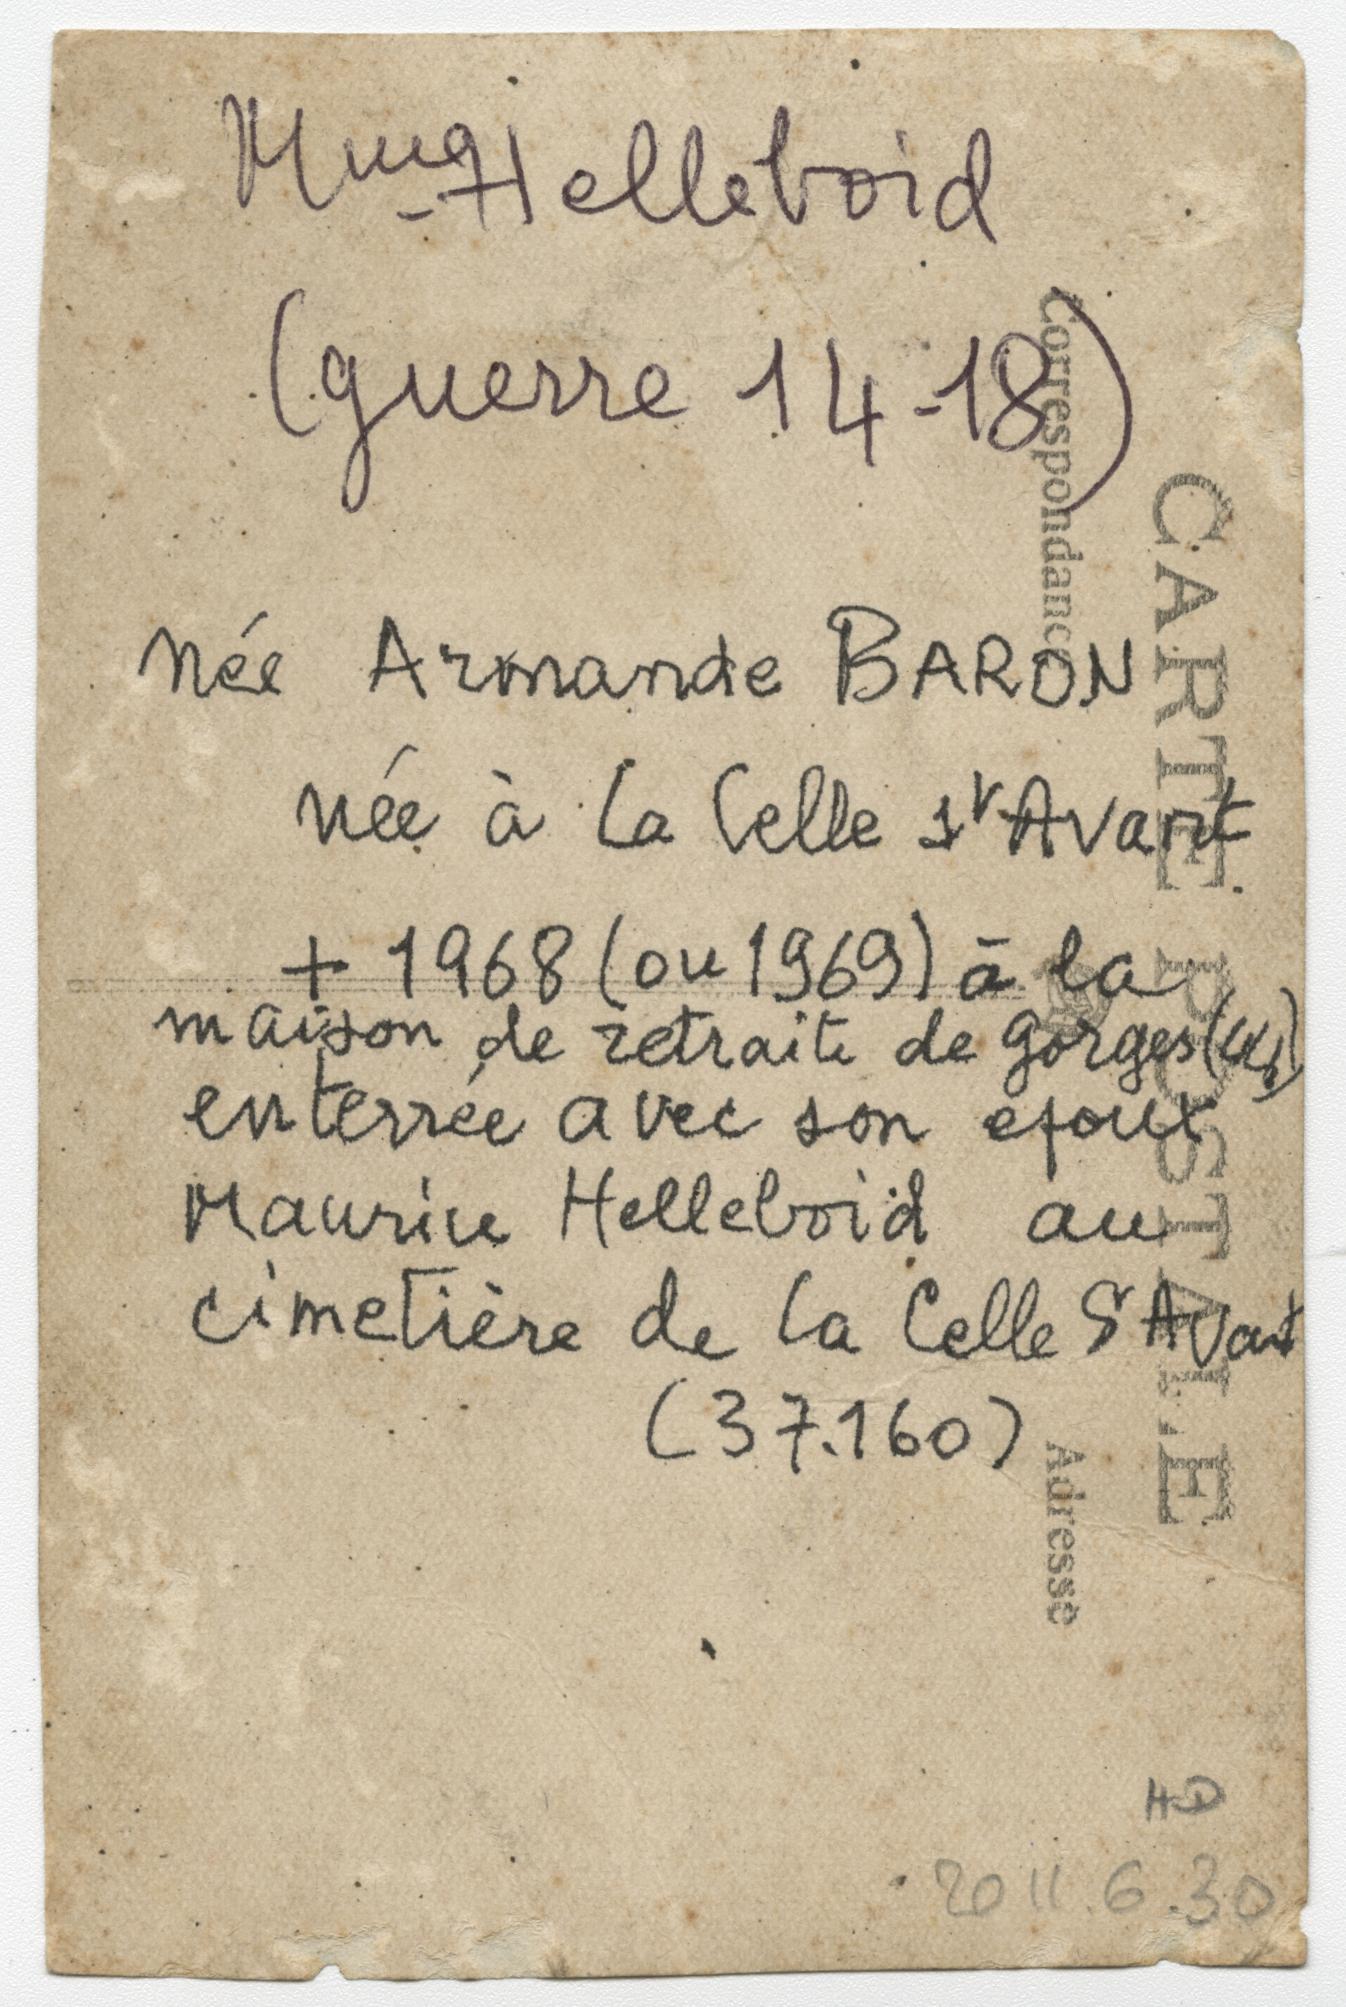 Mme Helleboid
(guerre 14-18)
née Armande BARON
née à La Celle St Avant
+ 1968 (ou 1969) à la
maison de retraite de Gorges (44)
enterrée avec son epoux
Maurice Helleboid au
cimetière de La Celle St Avant
(37.160)
CARTE POSTALE
Correspondance
Adresse
HD
2011.6.30